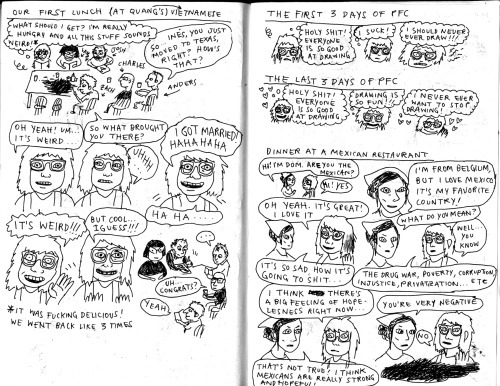 OUR FIRST LUNCH (AT QUANG'S) VIETNAMESE
WHAT SHOULD I GET? I'M REALLY
HUNGRY AND ALL THIS STUFF SOUNDS
WEIRD!*
SO, INES, YOU JUST
MOVED TO TEXAS,
RIGHT? HOW'S
THAT?
CHARLES
ZACH
ANDERS
OH YEAH! UM..
IT'S WEIRD....
SO WHAT BROUGHT
YOU THERE?
UHHH
I GOT MARRIED!
HAHAHAHA
IT'S WEIRD!!!
BUT COOL...
I GUESS!!!
HA HA ....
...
UH...
CONGRATS?
YEAH
*IT WAS FUCKING DELICIOUS!
WE WENT BACK LIKE 3 TIMES
THE FIRST 3 DAYS OF PFC
HOLY SHIT!
EVERYONE
IS SO GOOD
AT DRAWING
I SUCK!
I SHOULD NEVER
EVER DRAW!!!
THE LAST 3 DAYS OF PFC
HOLY SHIT!
EVERYONE
IS SO GOOD
AT DRAWING
DRAWING IS
SO FUN!!
I NEVER EVER
WANT TO STOP
DRAWING!
DINNER AT A MEXICAN RESTAURANT
HI! I'M DOM. ARE YOU THE
MEXICAN?
HI! YES
I'M FROM BELGIUM,
BUT I LOVE MEXICO
IT'S MY FAVORITE
COUNTRY!
OH YEAH. IT'S GREAT!
I LOVE IT
WHAT DO YOU MEAN?
WELL...
YOU
KNOW
IT'S SO SAD HOW IT'S
GOING TO SHIT...
THE DRUG WAR, POVERTY, CORRUPTION,
INJUSTICE, PRIVATIZATION... ETC
I THINK THERE'S
A BIG FEELING OF HOPE-
LESNESS RIGHT NOW...
YOU'RE VERY NEGATIVE
NO
THAT'S NOT TRUE! I THINK
MEXICANS ARE REALLY STRONG
AND HOPEFUL!